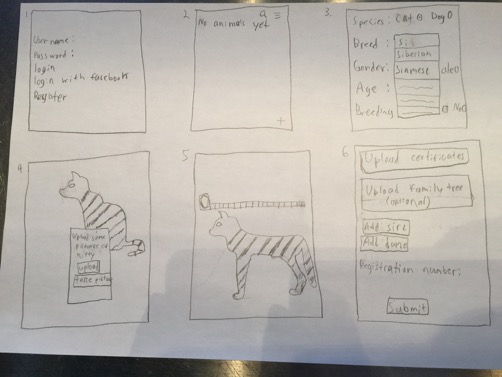 1.
User name:
Password:
login
login with facebook
Register
2.
No animals yet
+
3.
Species: Cat Dog
Breed: Sib
Siberian
Gender: Siamese
Age:
Breeding No
4
Upload some
pictures of
kitty
Upload
take picture
5
6
Upload certificates
Upload family tree
(optional)
Add sire
Add dame
Registration number:
Submit